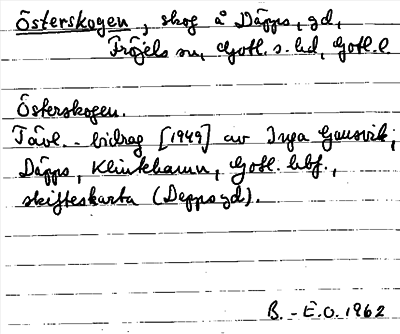 Österskogen, skog å Däpps, gd,
Fröjels sn, Gotl. s. hd, Gotl. l.
Österskogen.
Tävl.-bidrag [1949] av Inga Gansvik;
Däpps, Klintehamn, Gotl. hbf.,
skifteskarta (Depps gd).
B.-E.O. 1962